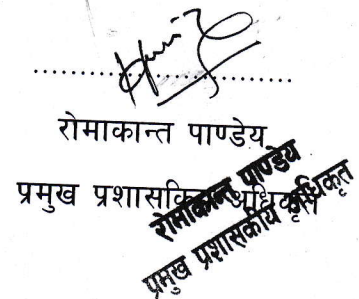 ..............................
रोमाकान्त पाण्डेय
प्रमुख प्रशासकिय अधिकृत
रोमाकान्त पाण्डेय
प्रमुख प्रशासकीय अधिकृत